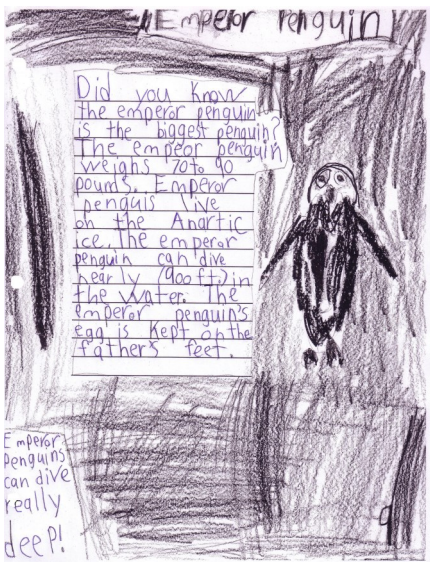 Emperor Penguin
Did you know
the emperor penguin
is the biggest penguin?
The empeor penguin
weighs 70 to 90
pounds. Emperor
penguis live
on the Anartic
ice. The emperor
penguin can dive
nearly (900 ft) in
the water. The
emperor penguin's
egg is kept on the
father's feet.
Emperor
Penguins
can dive
really
deep!